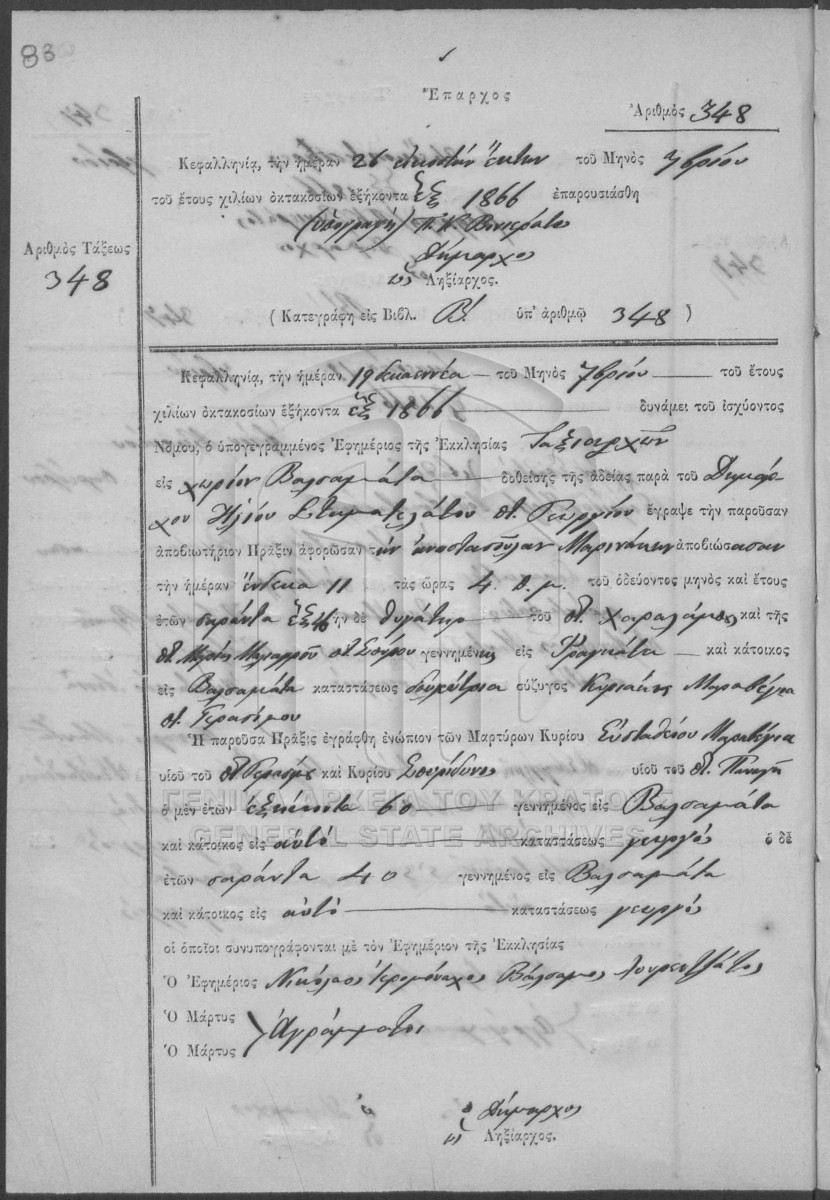 83
Ἔπαρχος
Ἀριθμὸς 348
Κεφαλληνίᾳ, τὴν ἡμέραν 26 εἰκοστὴν ἕκτην τοῦ Μηνὸς 7βρίου
τοῦ ἔτους χιλίων ὀκτακοσίων ἑξήκοντα ἓξ 1866 ἐπαρουσιάσθη
(ὑπογραφὴ) Π. Κ.
Δήμαρχος
Ἀριθμὸς Τάξεως
348
Ληξίαρχος.
( Κατεγράφη εἰς Βιβλ. Β! ὑπ' ἀριθμῷ 348 )
Κεφαλληνίᾳ, τὴν ἡμέραν 19 δεκαεννέα τοῦ Μηνὸς 7βρίου τοῦ ἔτους
χιλίων ὀκτακοσίων ἑξήκοντα ἓξ 1866 δυνάμει τοῦ ἰσχύοντος
Νόμου, ὁ ὑπογεγραμμένος Ἐφημέριος τῆς Ἐκκλησίας Ταξιαρχῶν
εἰς χωρίον Βαλσαμάτα δοθείσης τῆς ἀδείας παρὰ τοῦ Δημάρ-
χου Ἠλίου Σταματελάτου π. Γεωργίου ἔγραψε τὴν παροῦσαν
ἀποβιωτήριον Πρᾶξιν ἀφορῶσαν τὴν ἀναστασούλαν Μαρινάκην ἀποβιώσασαν
τὴν ἡμέραν ἕνδεκα 11 τὰς ὥρας 4. π. μ. τοῦ ὁδεύοντος μηνὸς καὶ ἔτους
ἐτῶν σαράντα ἓξ 46 ἦν δὲ θυγάτηρ τοῦ π. Χαραλάμπου καὶ τῆς
π. Σπύρου γεννημένης εἰς Φραγκάτα καὶ κάτοικος
εἰς Βαλσαμάτα καταστάσεως δουλεύτρια σύζυγος Κυριάκης Μαραβέγια
π. Γερασίμου
Ἡ παροῦσα Πρᾶξις ἐγράφθη ἐνώπιον τῶν Μαρτύρων Κυρίου Εὐσταθείου Μαραβέγια
υἱοῦ τοῦ π. Γερασίμ καὶ Κυρίου Σπυρίδωνος υἱοῦ τοῦ π. Παναγῆ
ὁ μὲν ἐτῶν ἑξήκοντα 60 γεννημένος εἰς Βαλσαμάτα
καὶ κάτοικος εἰς αὐτό καταστάσεως γεωργός ὁ δὲ
ἐτῶν σαράντα 40 γεννημένος εἰς Βαλσαμάτα
καὶ κάτοικος εἰς αὐτό καταστάσεως γεωργός
οἱ ὁποῖοι συνυπογράφονται μὲ τὸν Ἐφημέριον τῆς Ἐκκλησίας
Ὁ Ἐφημέριος Νικόλαος Ἱερομόναχος Βάλσαμος Λουρεντζάτος
Ὁ Μάρτυς
Ὁ Μάρτυς
Ἀγράμματοι
ὁ Δήμαρχος
Ληξίαρχος.
ΓΕΝΙΚΑ ΑΡΧΕΙΑ ΤΟΥ ΚΡΑΤΟΥΣ
GENERAL STATE ARCHIVES